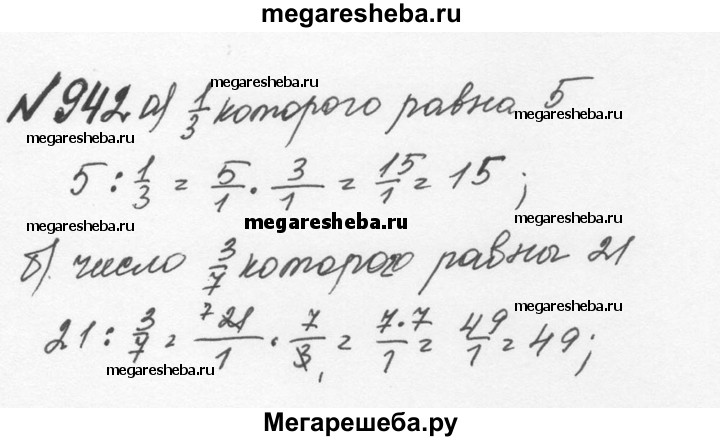 megaresheba.ru
№ 942 а) 1/3 которого равна 5
megaresheba.ru
megaresheba.ru
megaresheba.ru
5 : 1/3 = 5/1 · 3/1 = 15/1 = 15 ;
megaresheba.ru
megaresheba.ru
megaresheba.ru
megaresheba.ru
б) число 3/7 которого равны 21
megaresheba.ru
21 : 3/7 = 7 21/1 · 7/3 1 = 7·7/1 = 49/1 = 49 ;
megaresheba.ru
megaresheba.ru
Мегарешеба.ру